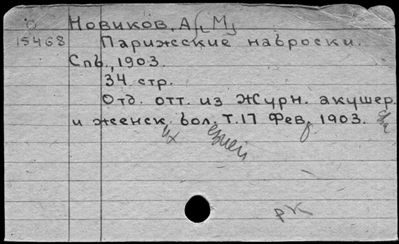 Новиков, А. М.
15468 Парижские наброски.
Спб., 1903.
34 стр.
Отд. отт. из Журн. акушер.
и женск. бол. Т. 17 Фев. 1903.
их езней
рк